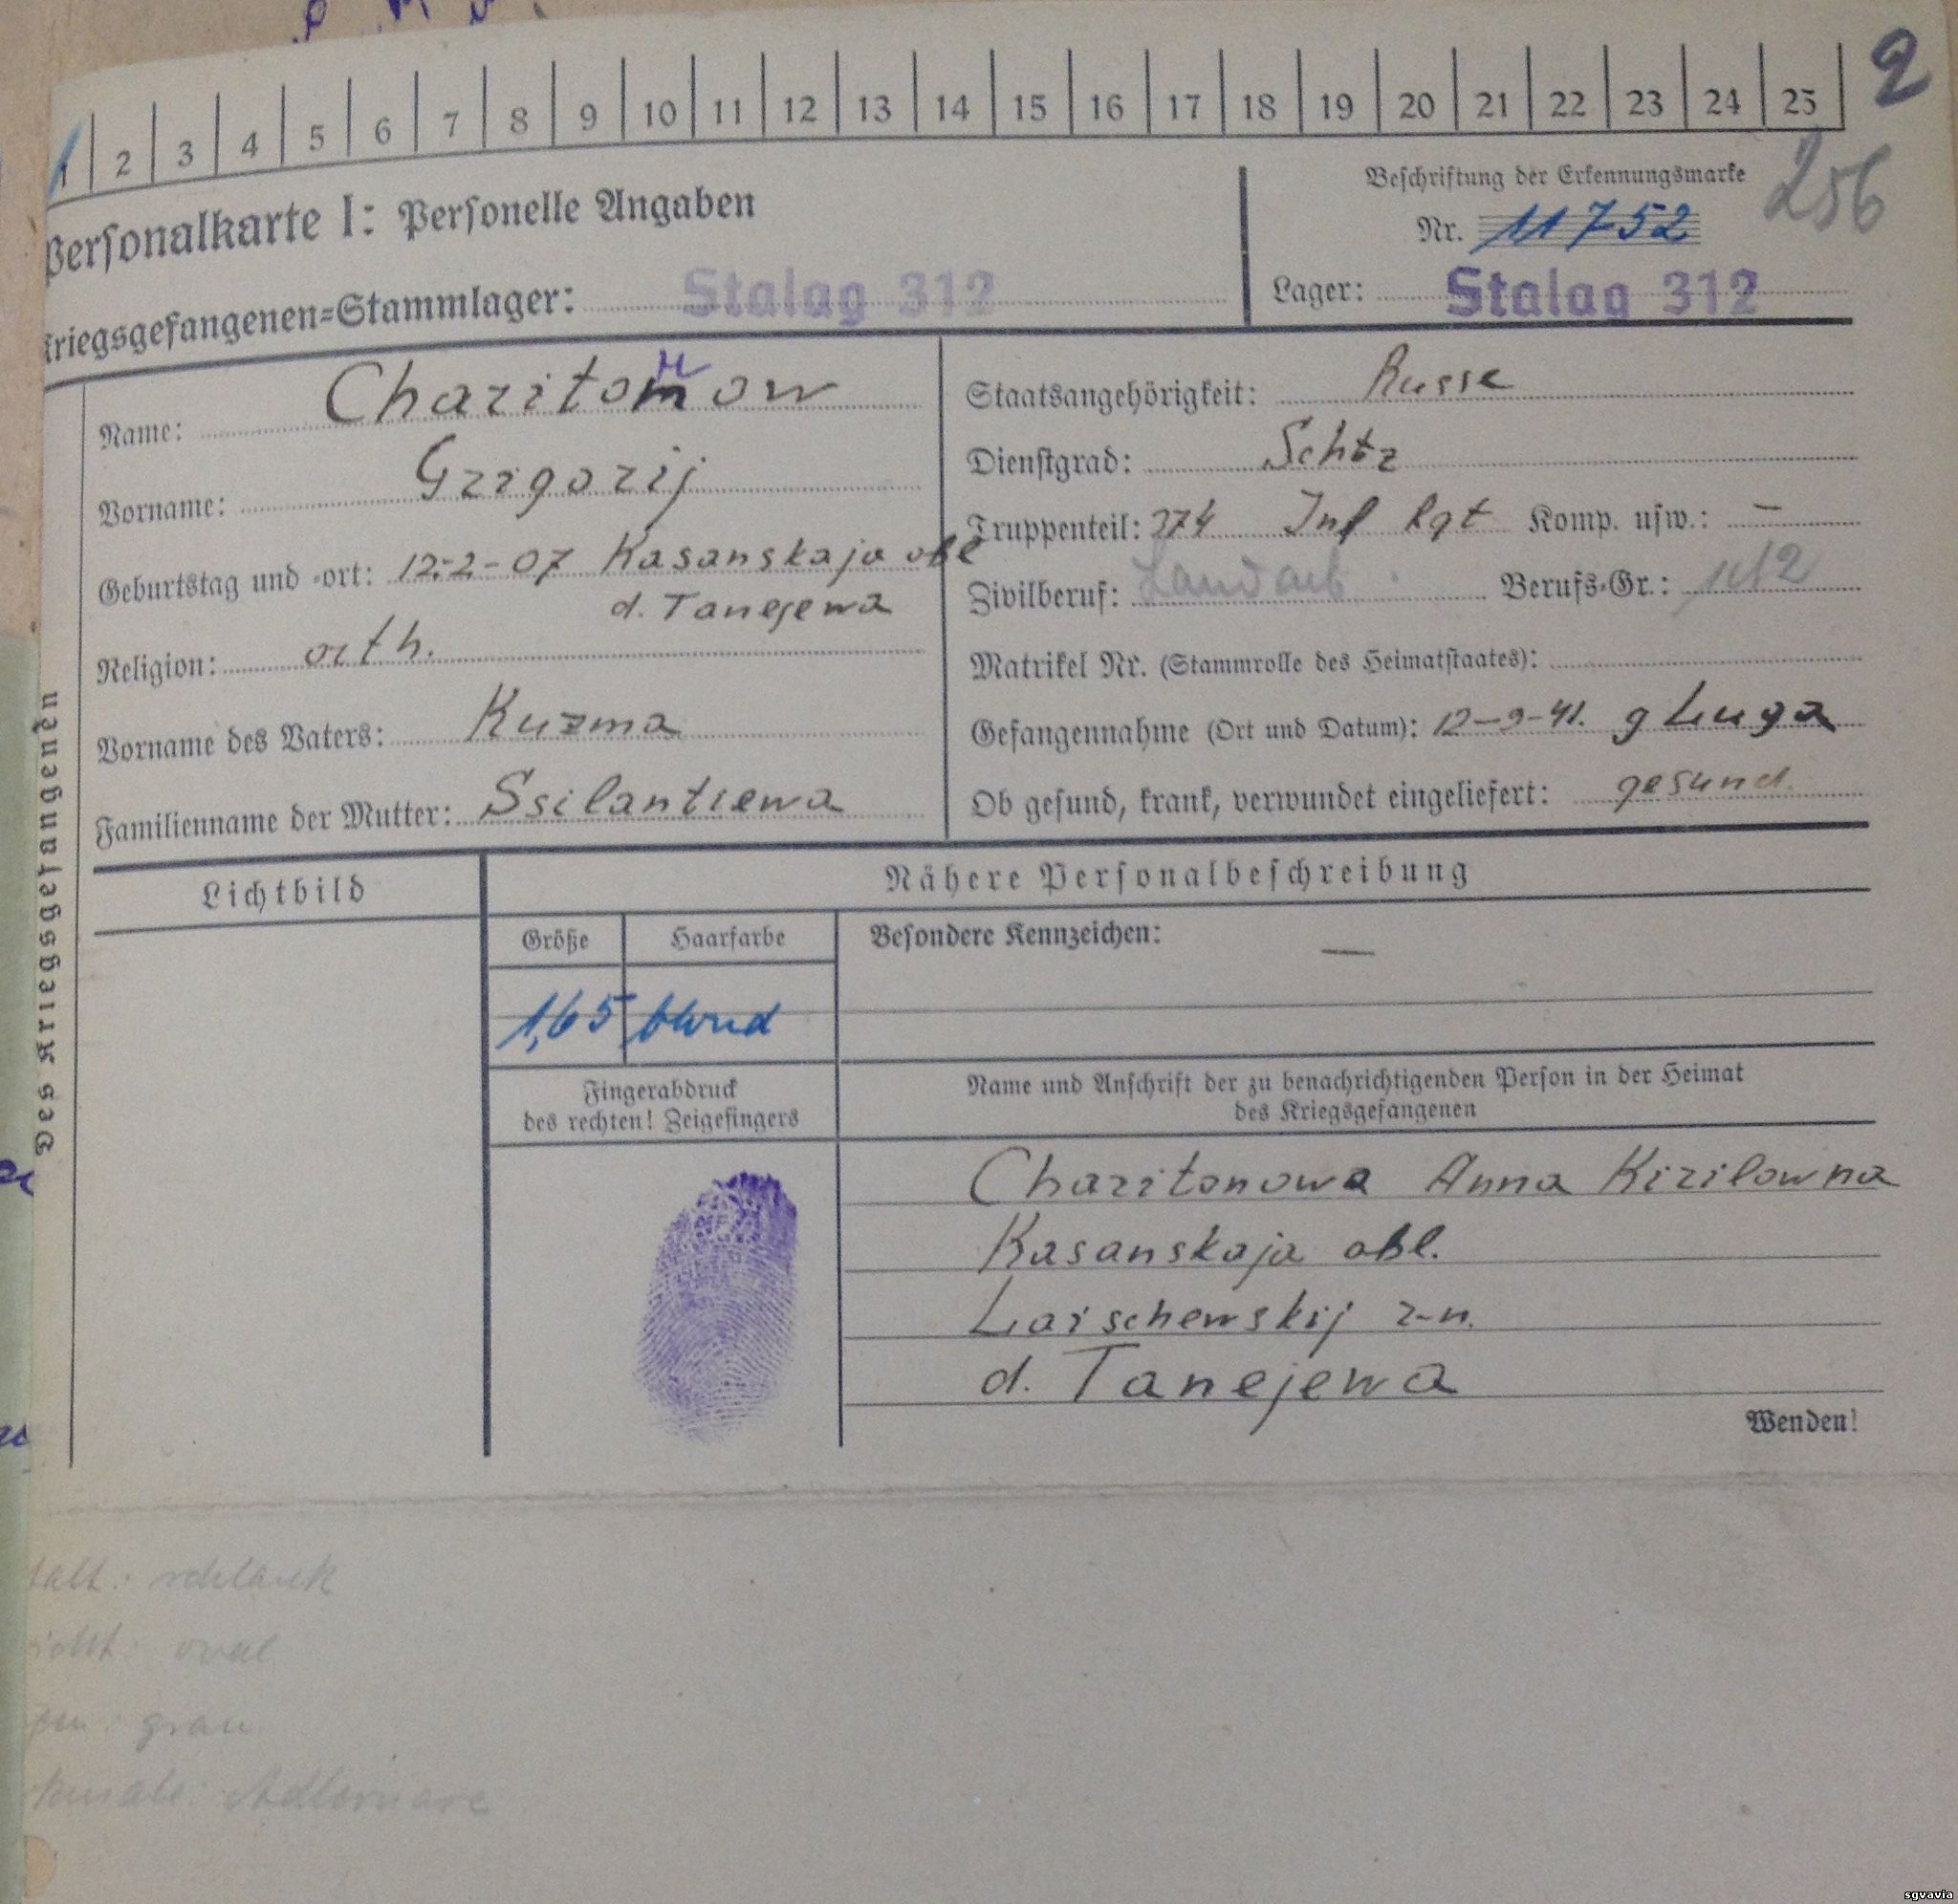 2
1 2 3 4 5 6 7 8 9 10 11 12 13 14 15 16 17 18 19 20 21 22 23 24 25
Personalkarte I: Personelle Angaben
Kriegsgefangenen=Stammlager: Stalag 312
Beschriftung der Erkennungsmarke
256
Nr. 11752
Lager: Stalag 312
Des Kriegsgefangenen
Name: Charitonow
Vorname: Grigorij
Geburtstag und -ort: 12-2-07 Kasanskaja obl
d. Tanejewa
Religion: orth.
Vorname des Vaters: Kuzma
Familienname der Mutter: Ssilantiewa
Staatsangehörigkeit: Russe
Dienstgrad: Schtz
Truppenteil: 374 Inf Rgt Komp. usw.: —
Zivilberuf: Landarb. Berufs-Gr.:
Matrikel Nr. (Stammrolle des Heimatstaates):
Gefangennahme (Ort und Datum): 12-9-41. g Luga
Ob gesund, krank, verwundet eingeliefert: gesund.
Lichtbild
Nähere Personalbeschreibung
Größe Haarfarbe Besondere Kennzeichen: —
1,65 blond
Fingerabdruck
des rechten! Zeigefingers
Name und Anschrift der zu benachrichtigenden Person in der Heimat
des Kriegsgefangenen
Charitonowa Anna Kirilowna
Kasanskaja obl.
Laischewskij r-n.
d. Tanejewa
Wenden!
talt: schlank
icht: oval
gen: grau
kmale: Adlernase
sgvavia